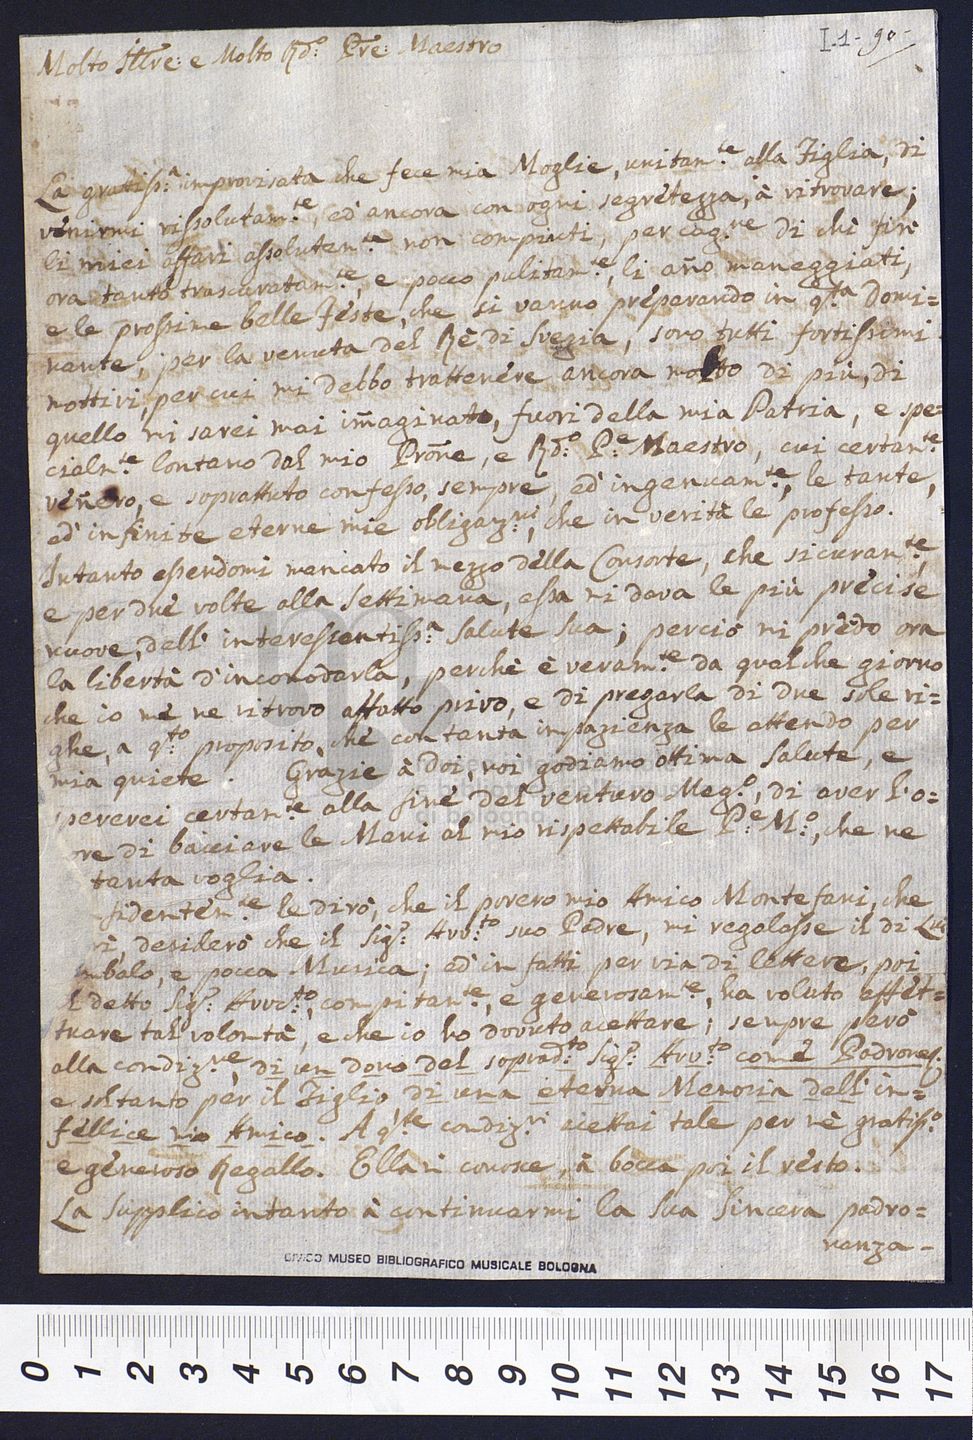 I.1-90-
Molto Illre: e Molto Rdo: Pre: Maestro
La gratissa: improvisata che fece mia Moglie, unitamte: alla Figlia, di
venirmi rissolutamte:, ed' ancora con ogni segretezza, à ritrovare;
li miei affari assolutemte: non compiuti, per cagne: di chi fin'
ora tanto trascuratamte:, e pocco pulitamte:, li año maneggiati,
e le prossime belle Feste, che si vanno preparando in qsta: Domi=
nante, per la venuta del Rè di Svezia, sono tutti fortissimi
mottivi, per cui mi debbo trattenere ancora molto di più, di
quello mi sarei mai im̃aginato, fuori della mia Patria, e spe=
cialmte: lontano dal mio Prõne, e Rdo: Pe: Maestro, cui certamte:
venero, e soprattuto confesso, sempre, ed' ingenuamte:, le tante,
ed' infinite eterne mie obligazni:, che in verità le professo.
Intanto essendomi mancato il mezzo della Consorte, che sicuramte:,
e per due volte alla Settimana, essa mi dava le più precise
nuove, dell' interessentissa: Salute Sua; perciò mi prèdo ora
la libertà d'incomodarla, perchè è veramte: da qualche giorno
che io me ne ritrovo affatto privo, e di pregarla di due sole ri=
ghe, a qto: proposito, che con tanta impazienza le attendo per
mia quiete. Grazie à Doi, noi godiamo ottima Salute, e
spererei certamte: alla fine del venturo Mego:, di aver l'o=
ore di bacciare le Mani al mio rispettabile Pe: Mo:, che ne
tanta voglia.
fidentemte: le dirò, che il povero mio Amico Montefani, che
rì, desiderò che il Sigr: Avvto: suo Padre, mi regalasse il di Lui
mbalo, e pocca Musica; ed' in fatti per via di lettere, poi
l detto Sigr: Avvto:, compitamte:, e generosamte:, ha voluto effet=
tuare tal volontà, e che io ho dovuto acettare; sempre però
alla condizne:, di un dono del sopradto: Sigr: Avvto: com'è Padrone,
e soltanto per il Figlio di una eterna Memoria dell' in=
fellice mio Amico. A qste: condizni: acettai tale per me gratisso:
e generoso Regallo. Ella mi conosce, à bocca poi il resto.
La Supplico intanto à continuarmi la Sua Sincera padro=
nanza -
CIVICO MUSEO BIBLIOGRAFICO MUSICALE BOLOGNA
di bologna
0 1 2 3 4 5 6 7 8 9 10 11 12 13 14 15 16 17